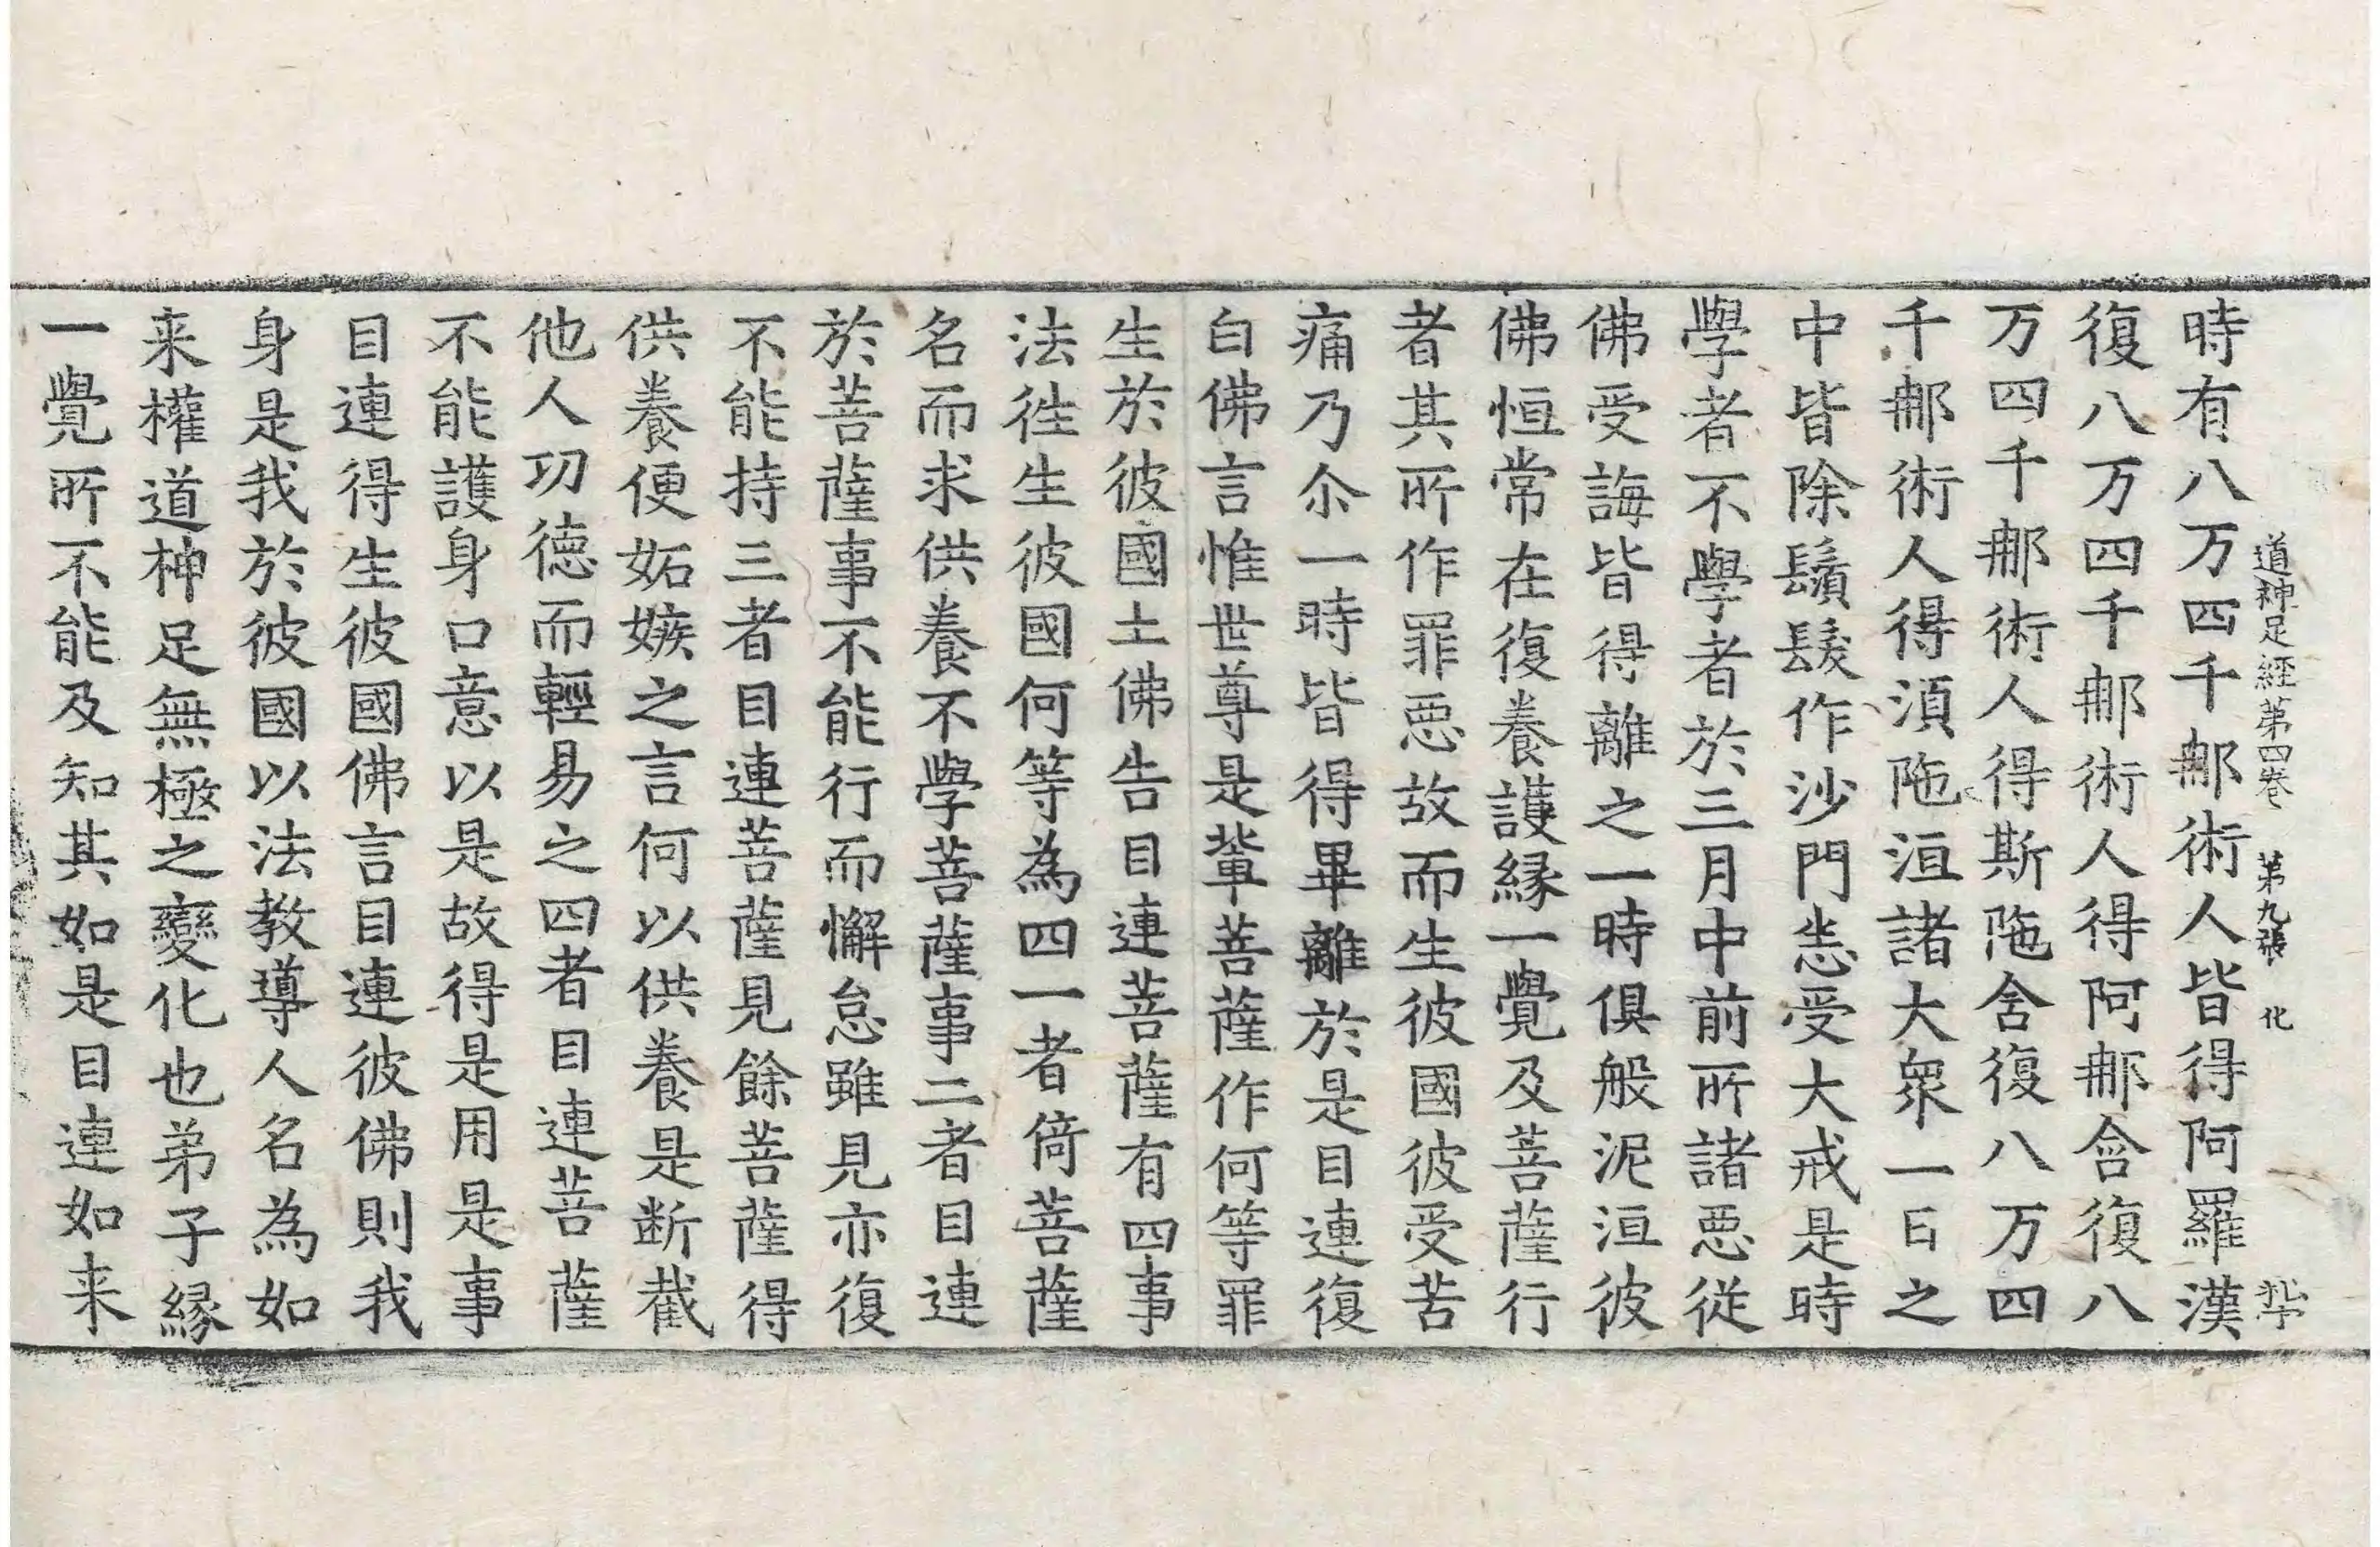 時有八万四千𨚗術人皆得阿羅漢
道神足經第四卷 第九張 化
復八万四千𨚗術人得阿𨚗含復八
万四千𨚗術人得斯陁含復八万四
千𨚗術人得湏陁洹諸大衆一日之
中皆除鬚髮作沙門悉受大戒是時
學者不學者於三月中前所諸惡從
佛受誨皆得離之一時俱般泥洹彼
佛恒常在復養護縁一覺及菩薩行
者其所作罪惡故而生彼國彼受苦
痛乃尒一時皆得畢離於是目連復
白佛言惟世尊是軰菩薩作何等罪
生於彼國土佛告目連菩薩有四事
法徃生彼國何等為四一者倚菩薩
名而求供養不學菩薩事二者目連
於菩薩事不能行而懈怠雖見亦復
不能持三者目連菩薩見餘菩薩得
供養便妬嫉之言何以供養是断截
他人功德而輕易之四者目連菩薩
不能護身口意以是故得是用是事
目連得生彼國佛言目連彼佛則我
身是我於彼國以法教導人名為如
来權道神足無極之變化也弟子縁
一覺所不能及知其如是目連如来